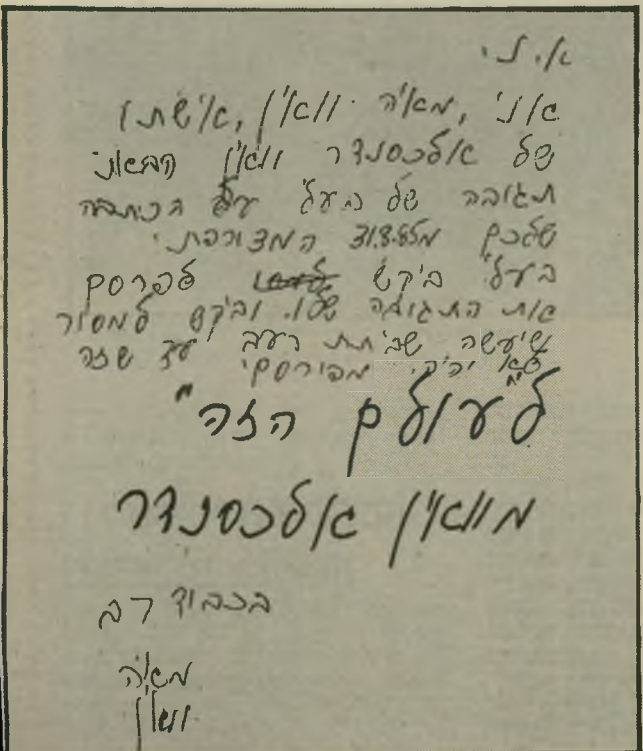 א.נ.
אני, מאיה וואין, אישתו
של אלכסנדר וואין הבאתי
תגובה של בעלי על הכתבה
שלכם מ־31.3.85 המצורפת.
בעלי ביקש לפרסם
את התגובה שלו. וביקש למסור
שיעשה שביתת רעב עד שזה
לא יהיה מפורסם
לעולם הזה"
מוואין אלכסנדר
בכבוד רב
מאיה
וואין